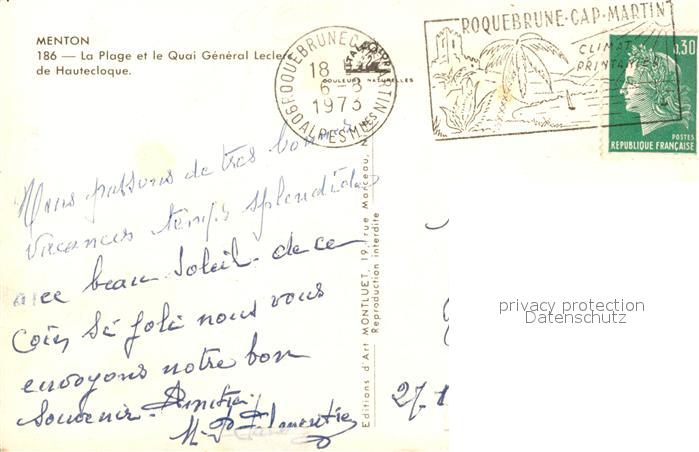 MENTON
186 — La Plage et le Quai Général Leclerc
de Hauteclocque.
COULEURS NATURELLES
ROQUEBRUNE CAP MARTIN
18 H
6-8
1973
06 ALPES MMES
ROQUEBRUNE-CAP-MARTIN
CLIMAT
PRINTANIER
0,30
POSTES
REPUBLIQUE FRANÇAISE
Nous passons de très bonnes
vacances temps splendide
avec beau soleil de ce
coin si joli nous vous
envoyons notre bon
Souvenir. Amitiés
M.
Editions d'Art MONTLUET, 19, rue Marceau,
Reproduction interdite
27.
privacy protection
Datenschutz